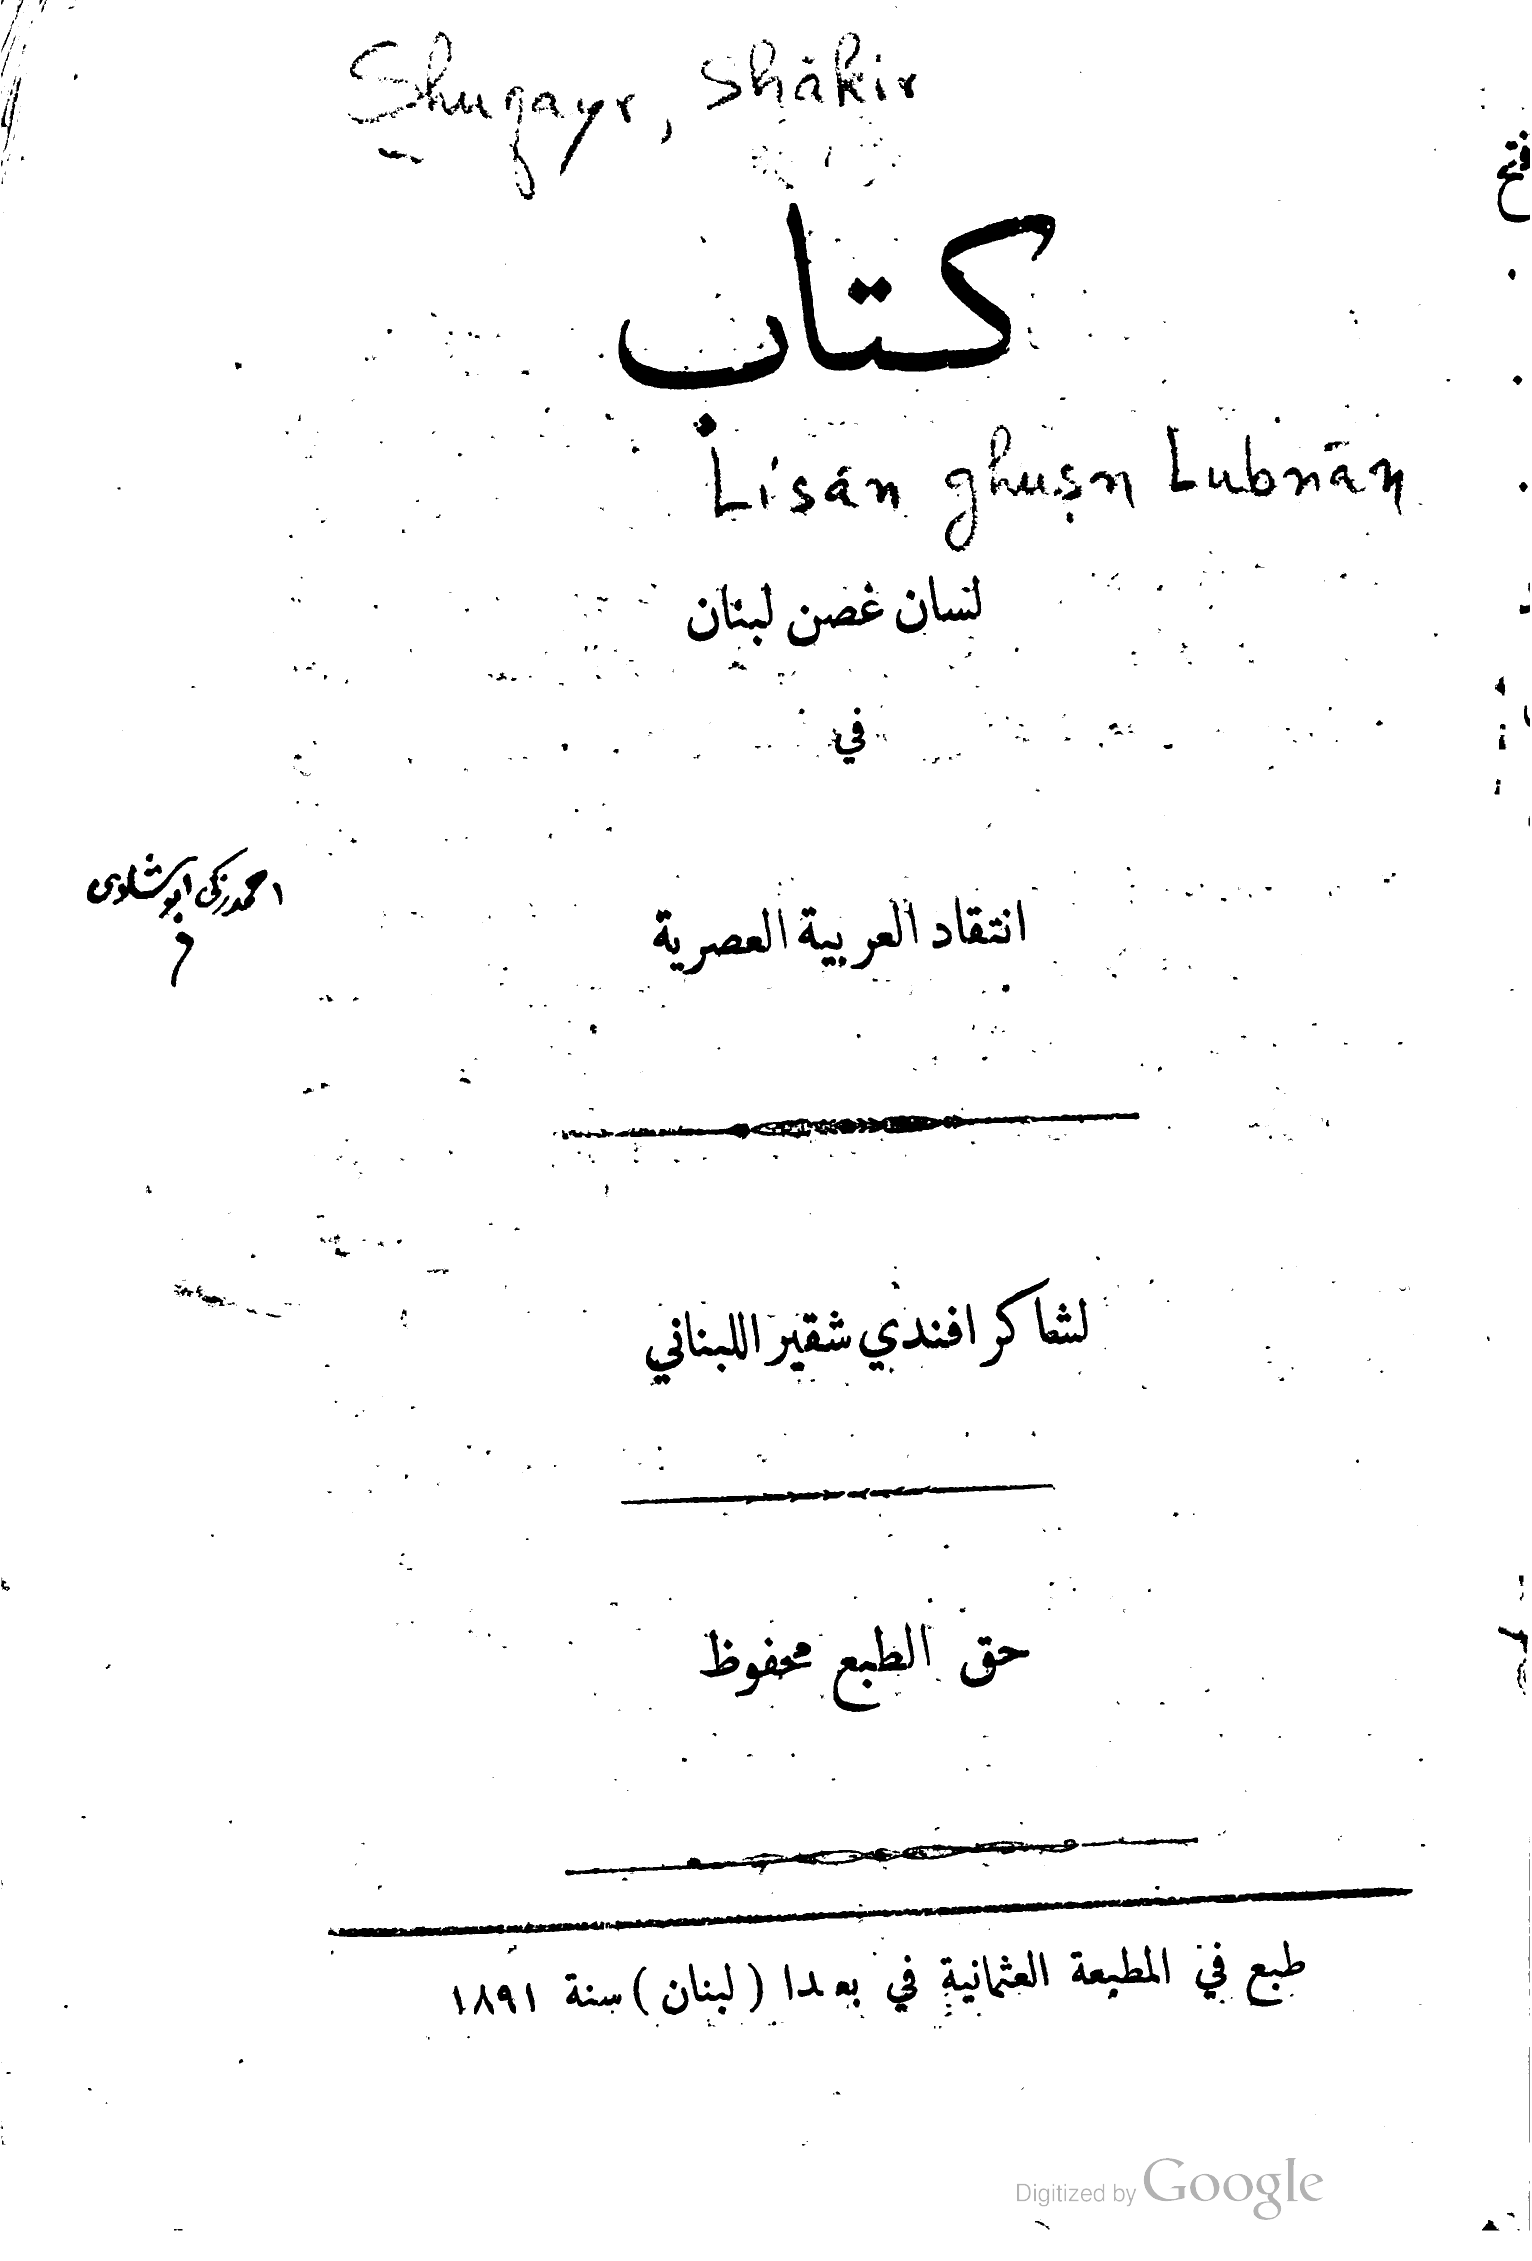 Shuqayr, Shākir
كتاب
Lisān ghuṣn Lubnān
لسان غصن لبنان
في
احمد زكي ابو شادى
انتقاد العربية العصرية
لشاكر افندي شقير اللبناني
حق الطبع محفوظ
طبع في المطبعة العثمانية في بعبدا (لبنان) سنة ١٨٩١
Digitized by Google